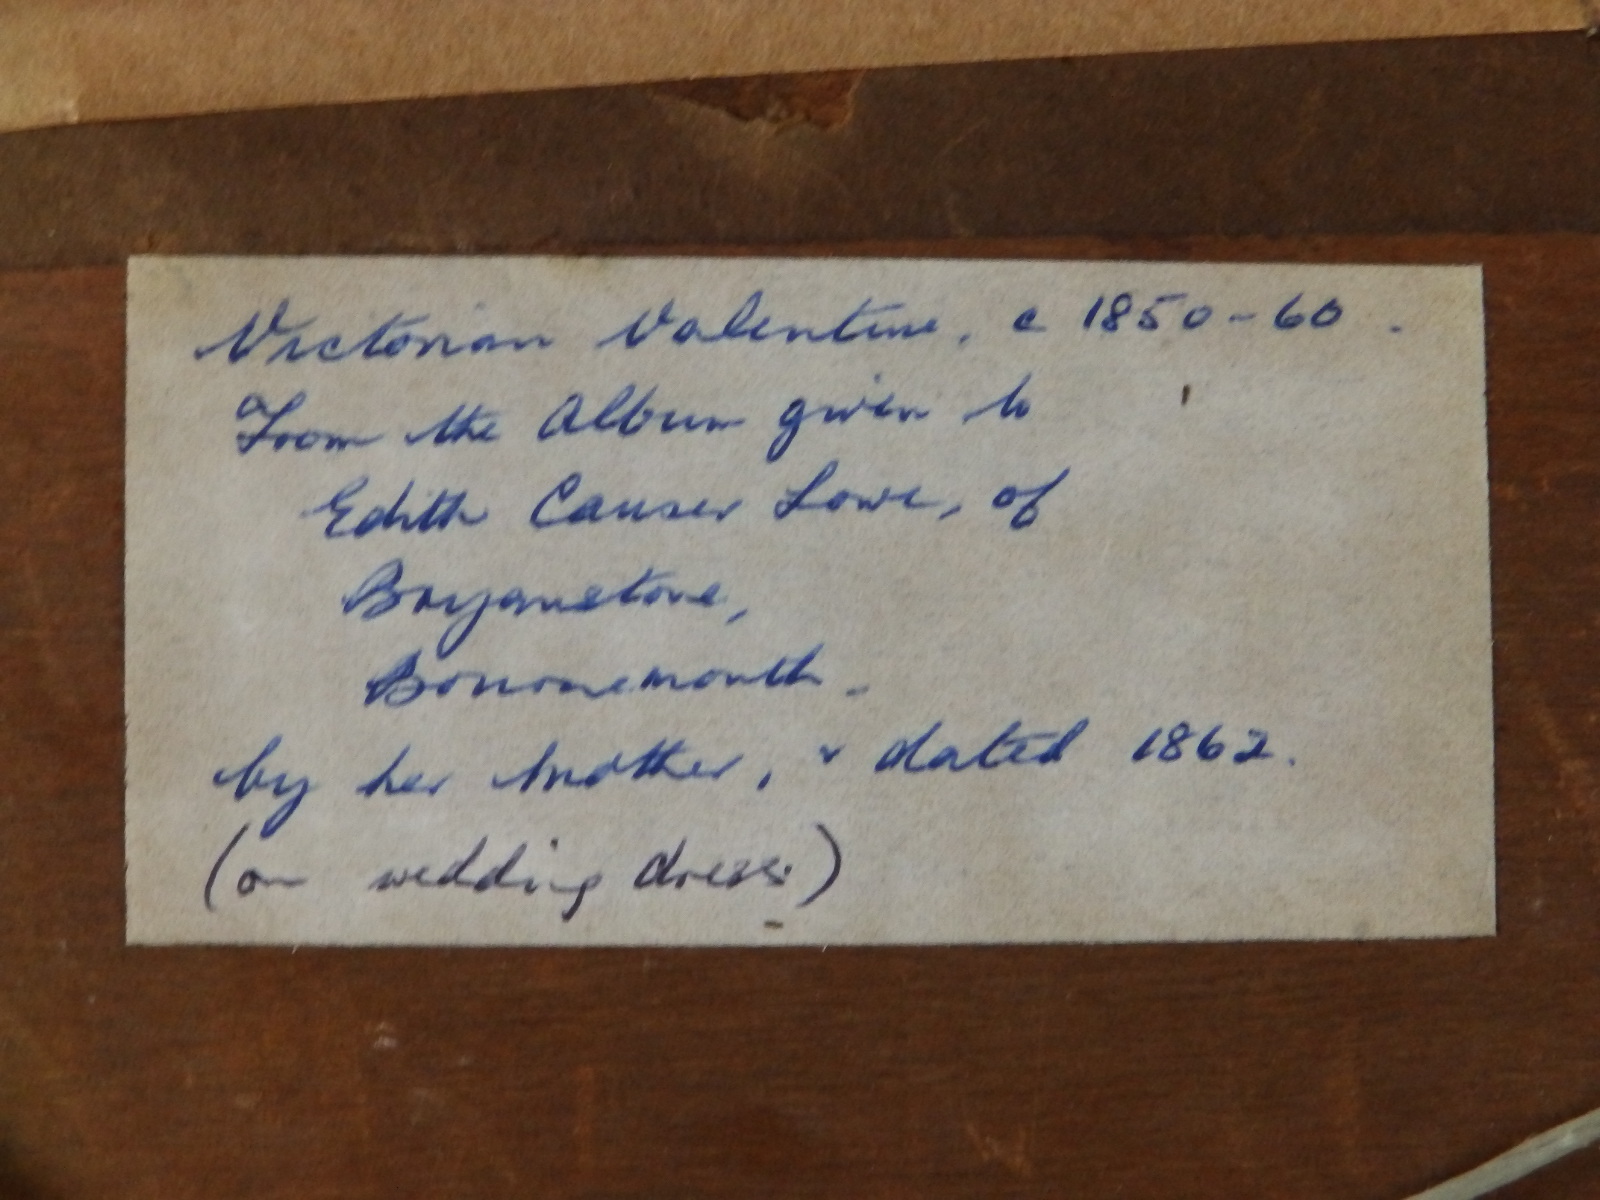 Victorian Valentine, c 1850-60.
From the Album given to
Edith Causer Lowe, of
Bryanstone,
Bournemouth.
by her Mother, & dated 1862.
(on wedding dress.)